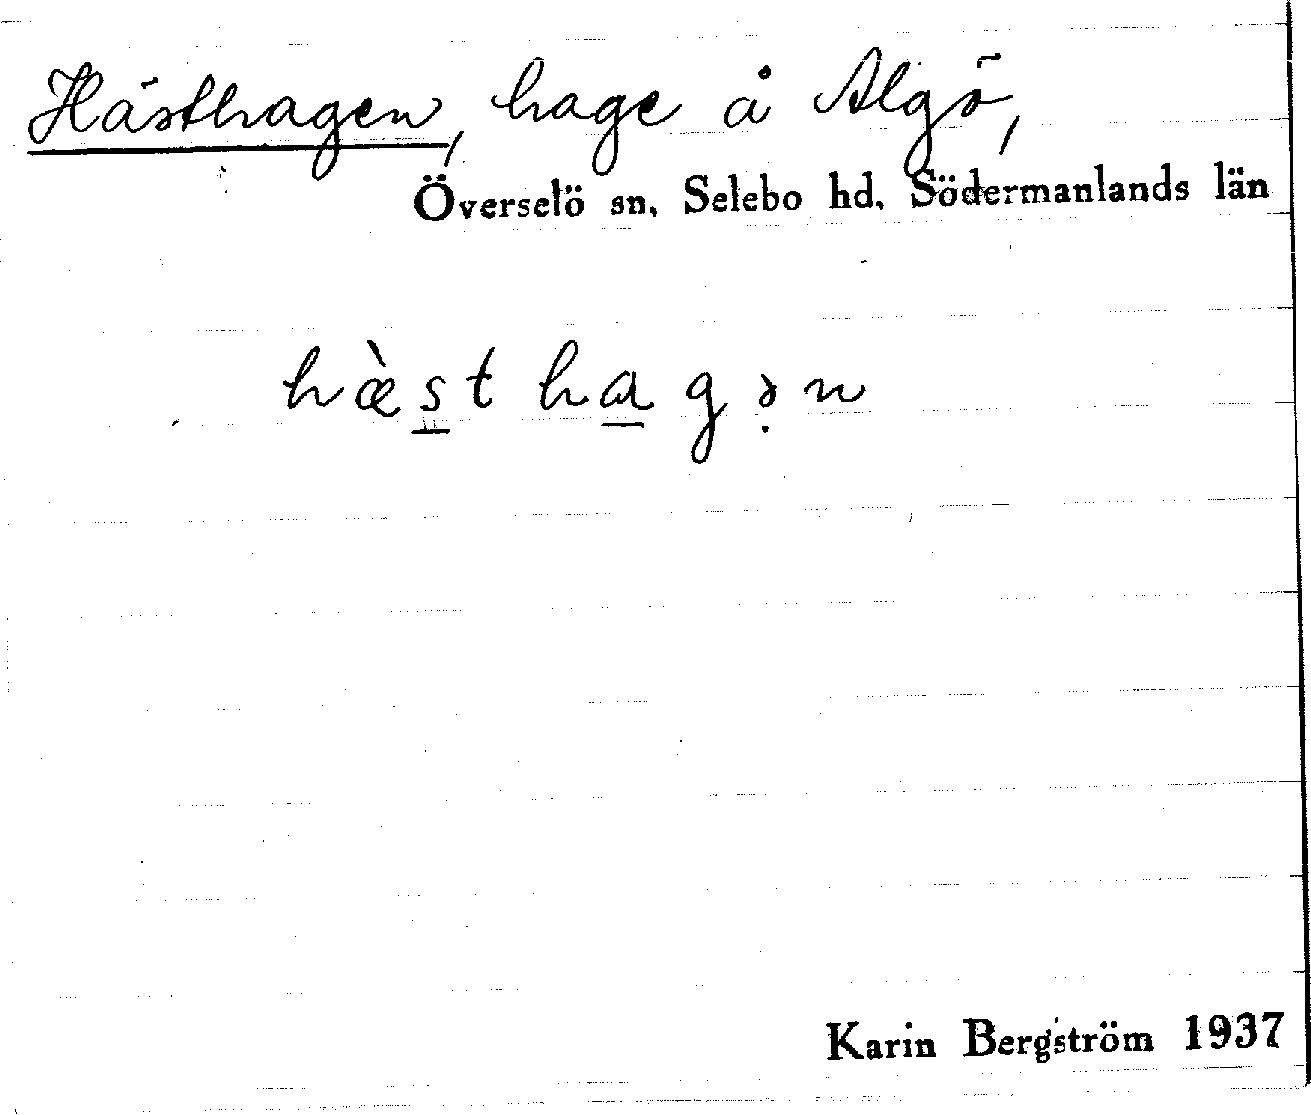 Hästhagen, hage å Algö,
Överselö sn, Selebo hd, Södermanlands län
hæ̀s̲t ha̲gə̣n
Karin Bergström 1937